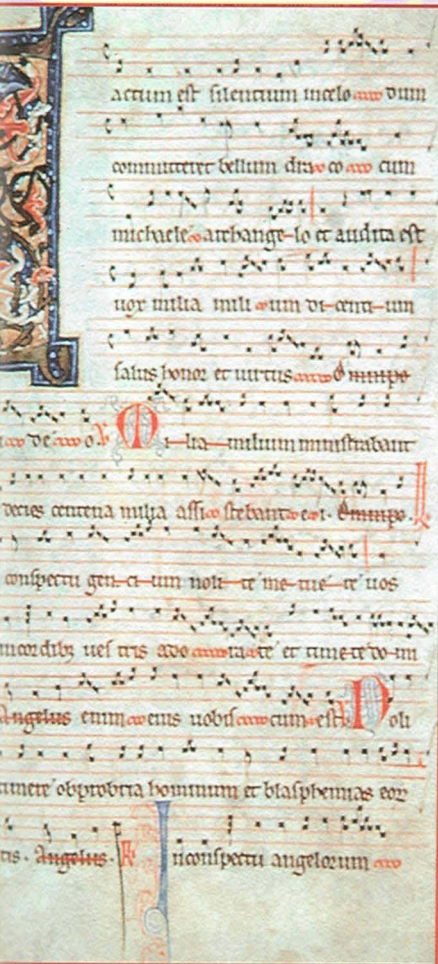 actum est silentium in celo dum
committeret bellum draco cum
michaele archangelo et audita est
uox milia milium dicentium
salus honor et uirtus Omnipo
de o V Milia milium ministrabant
decies centena milia assistebant ei. Omnipo. I
conspectu gencium nolite metuere uos
in cordib; uestris adorate et timete domi
Angelus enim eius uobiscum est V Noli
timere obprobria hominum et blasphemias eoꝝ
tis. Angelus. R In conspectu angelorum